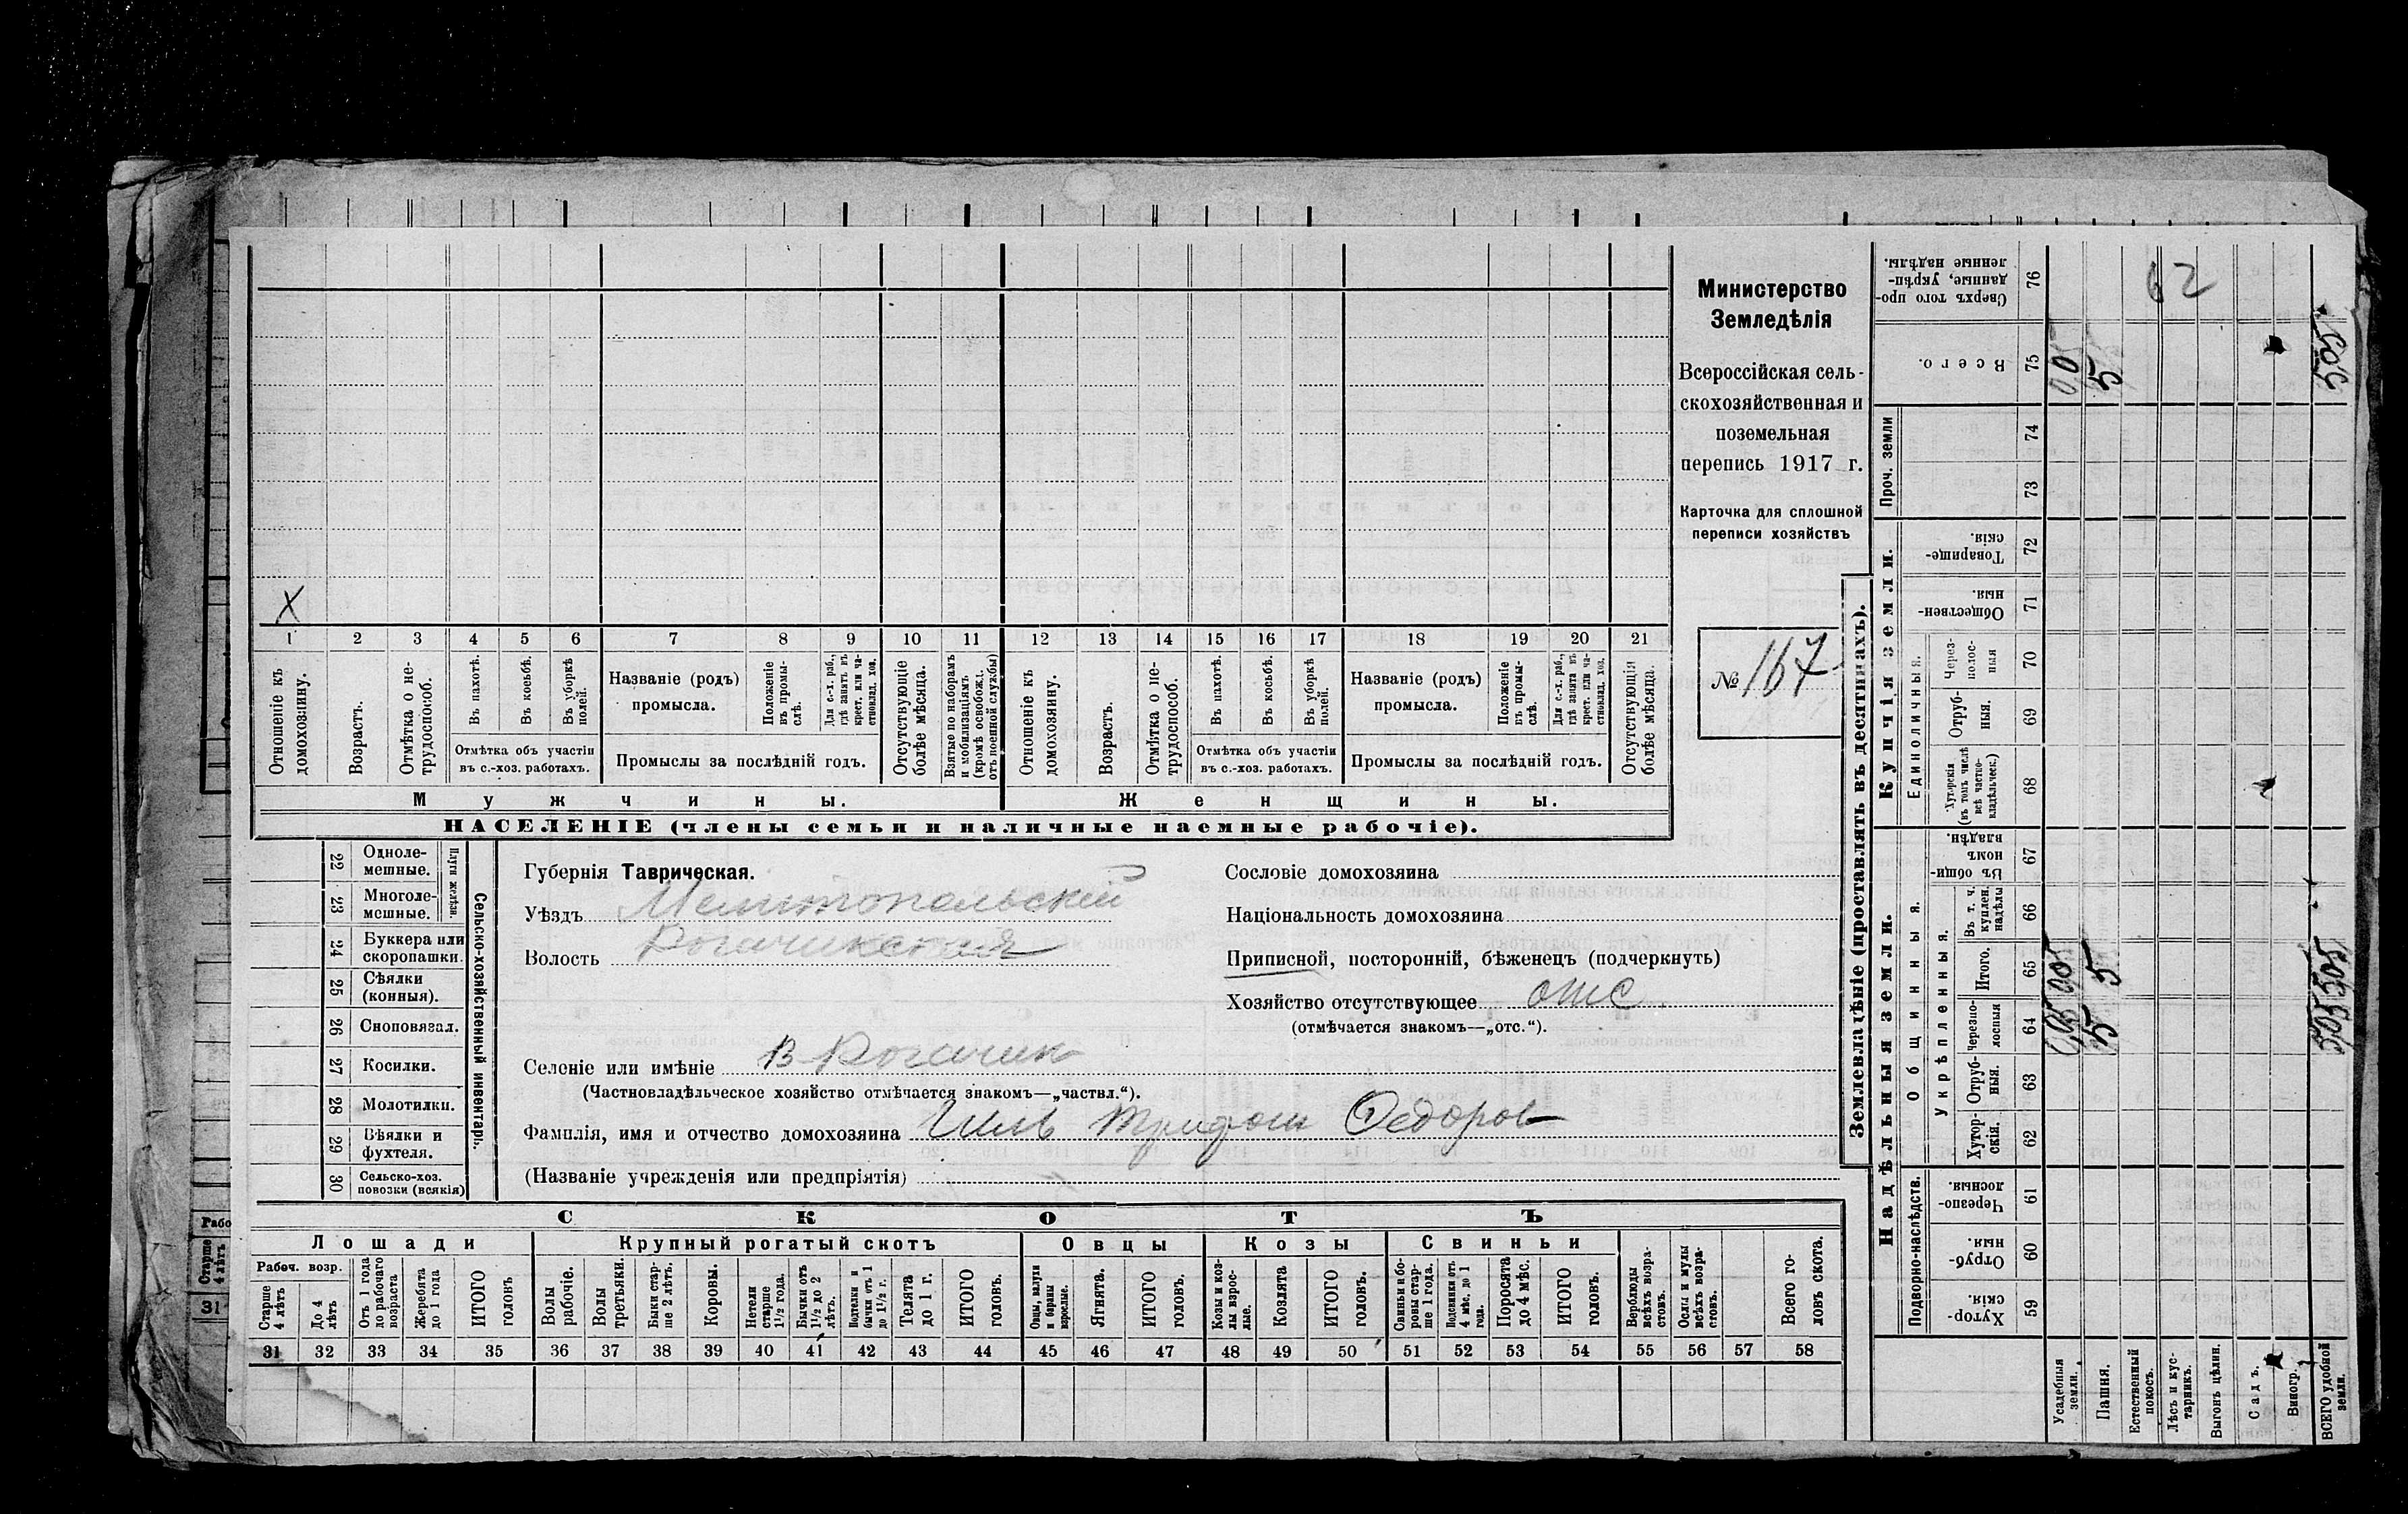 X
1 2 3 4 5 6 7 8 9 10 11 12 13 14 15 16 17 18 19 20 21
Отношеніе къ домохозяину.
Возрастъ.
Отмѣтка о не-
трудоспособ.
Въ пахотѣ.
Въ косьбѣ.
Въ уборкѣ полей.
Отмѣтка объ участіи
въ с.-хоз. работахъ.
Названіе (родъ)
промысла.
Положеніе въ промы-
слѣ.
Для с.-х. раб.,
гдѣ занатъ въ
крест. или ча-
стновлад. хоз.
Промыслы за послѣдній годъ.
Отсутствующіе
болѣе мѣсяца.
Взятые по наборамъ
и мобилизаціямъ
(кромѣ освобожд.
отъ военной службы)
Отношеніе къ
домохозяину.
Возрастъ.
Отмѣтка о не-
трудоспособ.
Въ пахотѣ.
Въ косьбѣ.
Въ уборкѣ
полей.
Отмѣтка объ участіи
въ с.-хоз. работахъ.
Названіе (родъ)
промысла.
Положеніе
въ промы-
слѣ.
Для с.-х. раб.,
гдѣ занята въ
крест. или ча-
стновлад. хоз.
Промыслы за послѣдній годъ.
Отсутствующія
болѣе мѣсяца.
Мужчины.
Женщины.
НАСЕЛЕНІЕ (члены семьи и наличные наемные рабочіе).
Министерство
Земледѣлія
Всероссійская сель-
скохозяйственная и
поземельная
перепись 1917 г.
Карточка для сплошной
переписи хозяйствъ
№ 167
22 Одноле-
мешные.
23 Многоле-
мешные.
Плуги желѣзн.
24 Буккера или
скоропашки.
25 Сѣялки
(конныя).
26 Сноповязал.
27 Косилки.
28 Молотилки.
29 Вѣялки и
фухтеля.
30 Сельско-хоз.
повозки (всякія)
Сельско-хозяйственный инвентарь.
Губернія Таврическая.
Уѣздъ Мелитопольскій
Волость Рогачикская
Селеніе или имѣніе В Рогачик
(Частновладѣльческое хозяйство отмѣчается знакомъ—„частвл.“).
Фамилія, имя и отчество домохозяина Трифон Федоров
(Названіе учрежденія или предпріятія)
Сословіе домохозяина
Національность домохозяина
Приписной, посторонній, бѣженецъ (подчеркнуть)
Хозяйство отсутствующее отс
(отмѣчается знакомъ—„отс.“).
СКОТЪ
Лошади
Крупный рогатый скотъ
Овцы
Козы
Свиньи
Рабоч. возр.
Старше
4 лѣтъ
До 4
лѣтъ
Отъ 1 года
до рабочаго
возраста
Жеребята
до 1 года
ИТОГО
головъ
Волы
рабочіе.
Волы
третьяки.
Быки стар-
ше 2 лѣтъ.
Коровы.
Нетели
старше
1½ года.
Бычки отъ
1½ до 2
лѣтъ.
Подтелки и
бычки отъ 1
до 1½ г.
Телята
до 1 г.
ИТОГО
головъ.
Овцы, валухи
и бараны
взрослые.
Ягнята.
ИТОГО
головъ.
Козы и коз-
лы взрос-
лые.
Козлята
ИТОГО
головъ.
Свиньи и бо-
ровы стар-
ше 1 года.
Подсвинки отъ
4 мѣс. до 1
года.
Поросята
до 4 мѣс.
ИТОГО
головъ.
Верблюды
всѣхъ возра-
стовъ.
Ослы и мулы
всѣхъ возра-
стовъ.
Всего го-
ловъ скота.
31 32 33 34 35 36 37 38 39 40 41 42 43 44 45 46 47 48 49 50 51 52 53 54 55 56 57 58
Землевладѣніе (проставлять въ десятинахъ).
Купчія земли.
Надѣльныя земли.
Сверхъ того про-
данные, укрѣп-
ленные надѣлы.
76
62
Всего.
75
5
Проч. земли
74
73
Товарище-
скія.
72
Обществен-
ныя.
71
Единоличныя.
Через-
полос-
ныя
70
Отруб-
ныя.
69
Хуторскія
(въ томъ числѣ
всѣ частно-
владѣльческ.)
68
Общинныя.
Въ общи-
номъ
владѣн.
67
Укрѣпленныя.
Въ т. ч.
куплен.
надѣлы
66
Итого.
65
5
Черезпо-
лосныя
64
5
Отруб-
ныя.
63
Хутор-
скія.
62
Подворно-наслѣдств.
Черезпо-
лосныя.
61
Отруб-
ныя.
60
Хутор-
скія
59
Усадебныя
земли.
Пашня.
Естественный
покосъ.
Лѣсъ и кус-
тарникъ.
Выгонъ цѣлин.
Садъ.
Виногр.
ВСЕГО удобной
земли.
Рабо
Старше
4 лѣтъ
31